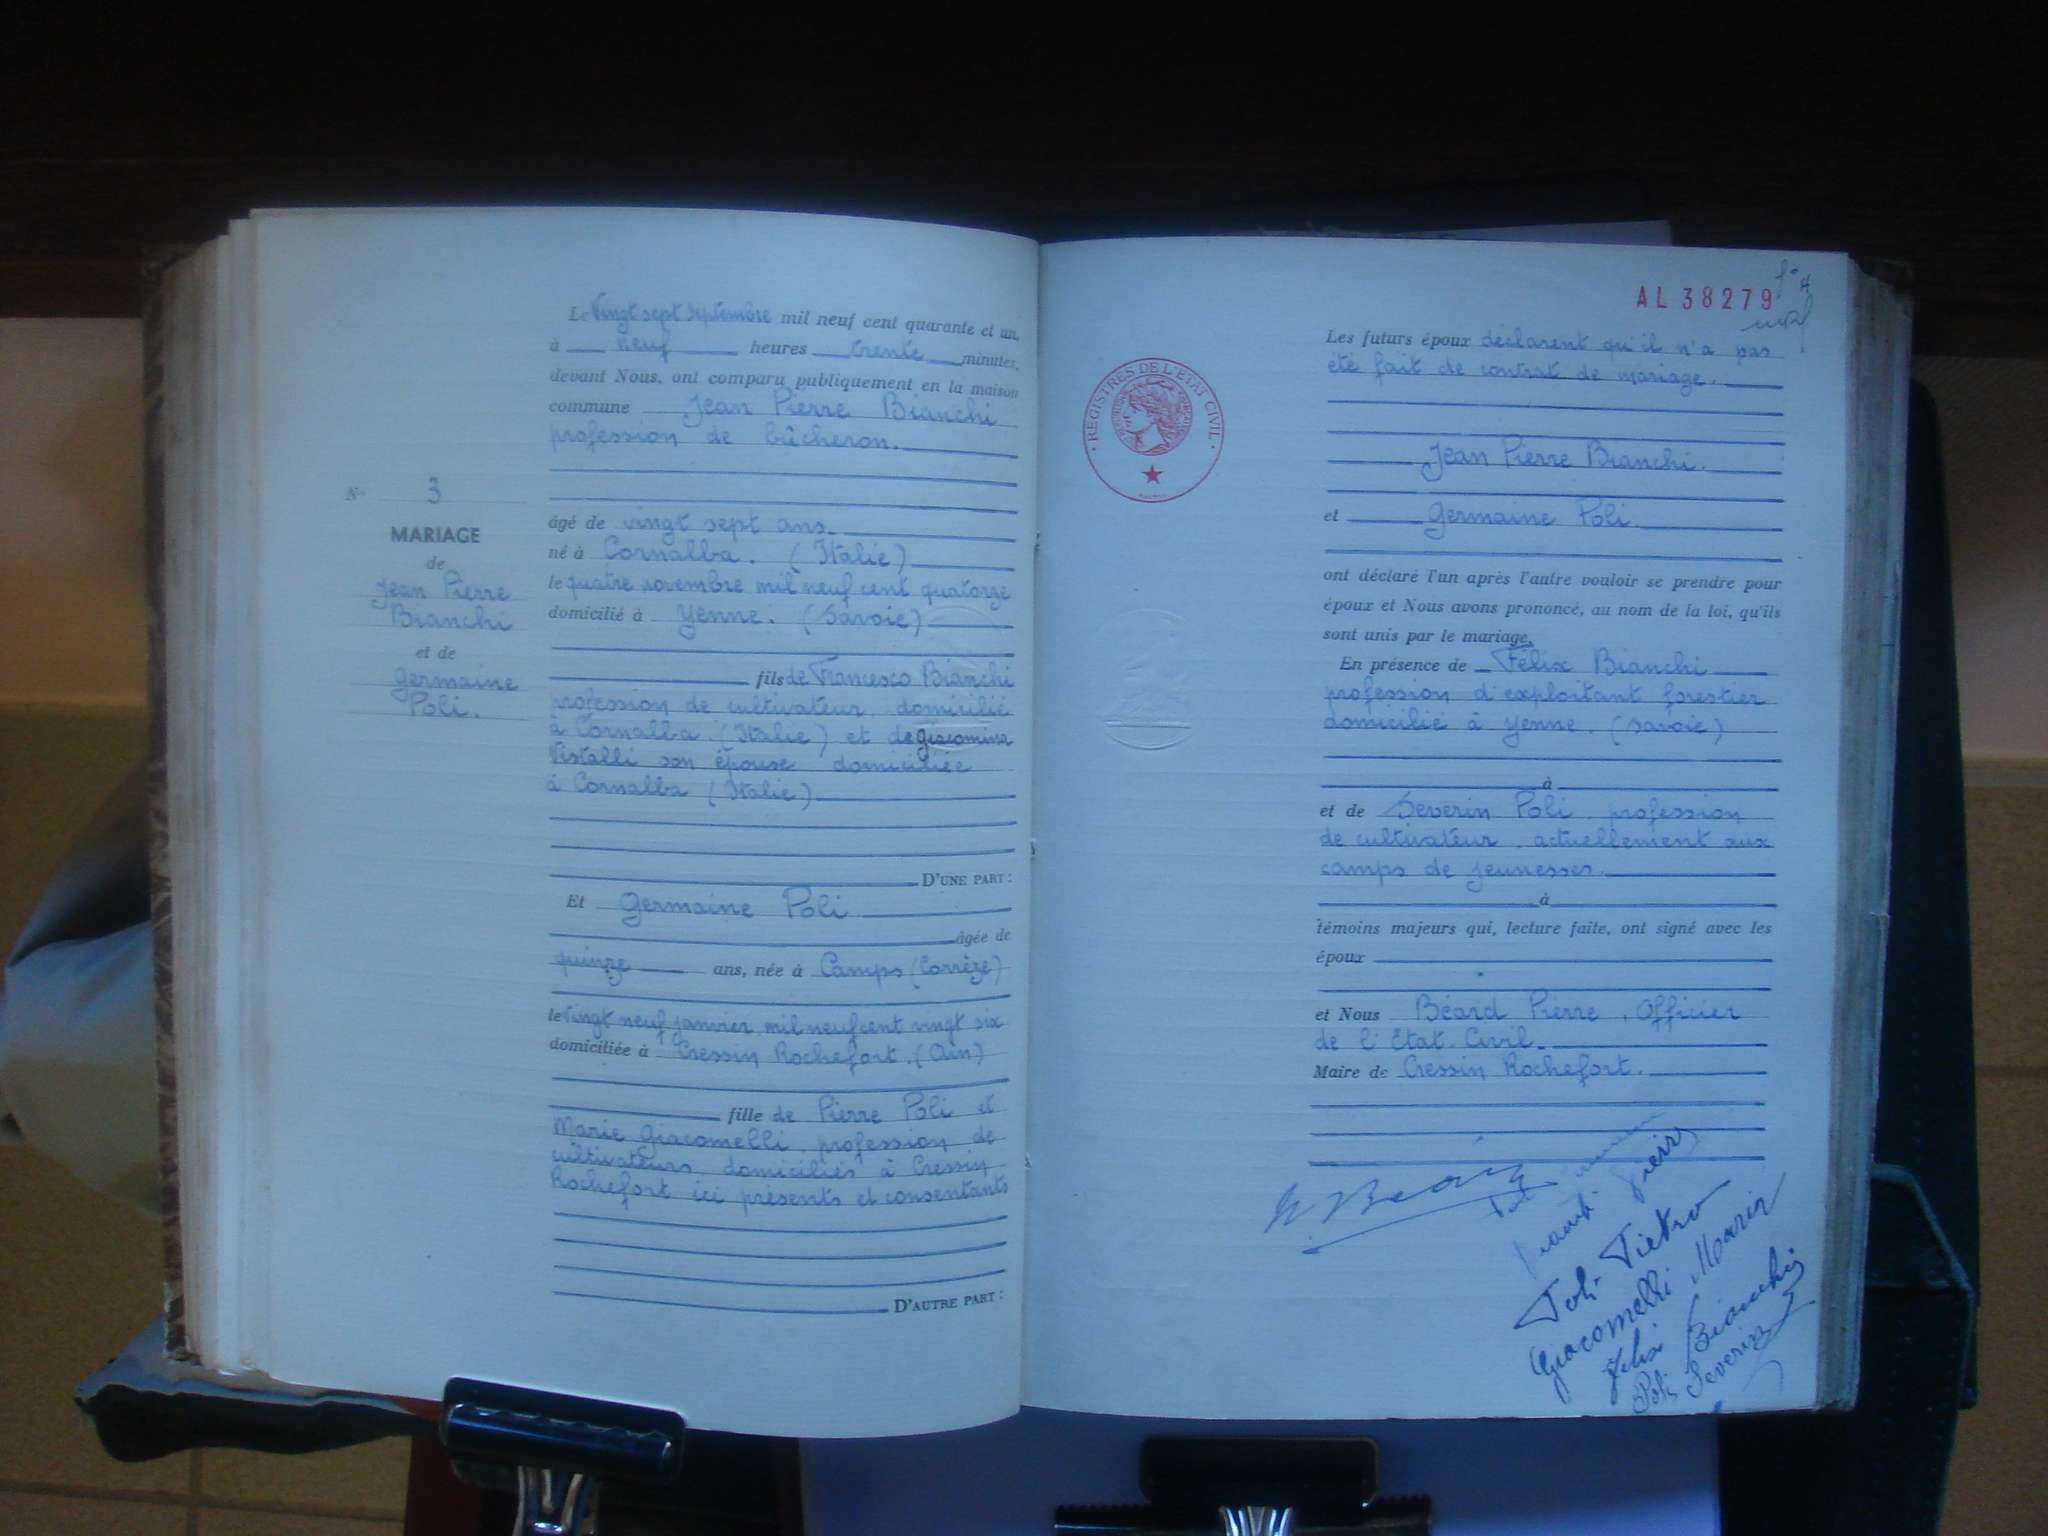 Le Vingt sept septembre mil neuf cent quarante et un,
à neuf heures trente minutes,
devant Nous, ont comparu publiquement en la maison
commune Jean Pierre Bianchi
profession de bûcheron.
N° 3
MARIAGE
de
Jean Pierre
Bianchi
et de
Germaine
Poli.
âgé de vingt sept ans.
né à Cornalba. (Italie)
le quatre novembre mil neuf cent quatorze
domicilié à Yenne. (Savoie)
fils de Francesco Bianchi
profession de cultivateur domicilié
à Cornalba (Italie) et de Giacomina
Vistalli son épouse domiciliée
à Cornalba (Italie)
D'UNE PART :
Et Germaine Poli
âgée de
quinze ans, née à Camps (Corrèze)
le vingt neuf janvier mil neuf cent vingt six
domiciliée à Cressin Rochefort. (Ain)
fille de Pierre Poli et
Marie Giacomelli, profession de
cultivateurs domiciliés à Cressin
Rochefort ici présents et consentants
D'AUTRE PART :
AL 38279
REGISTRES DE L'ETAT CIVIL
Les futurs époux déclarent qu'il n'a pas
été fait de contrat de mariage.
Jean Pierre Bianchi.
et Germaine Poli
ont déclaré l'un après l'autre vouloir se prendre pour
époux et Nous avons prononcé, au nom de la loi, qu'ils
sont unis par le mariage.
En présence de Félix Bianchi
profession d'exploitant forestier
domicilié à Yenne. (Savoie)
à
et de Severin Poli profession
de cultivateur actuellement aux
camps de jeunesses.
à
témoins majeurs qui, lecture faite, ont signé avec les
époux
et Nous Béard Pierre, Officier
de l'Etat Civil.
Maire de Cressin Rochefort.
Poli Pietro
Giacomelli Maria
Felix Bianchi
Poli Severin